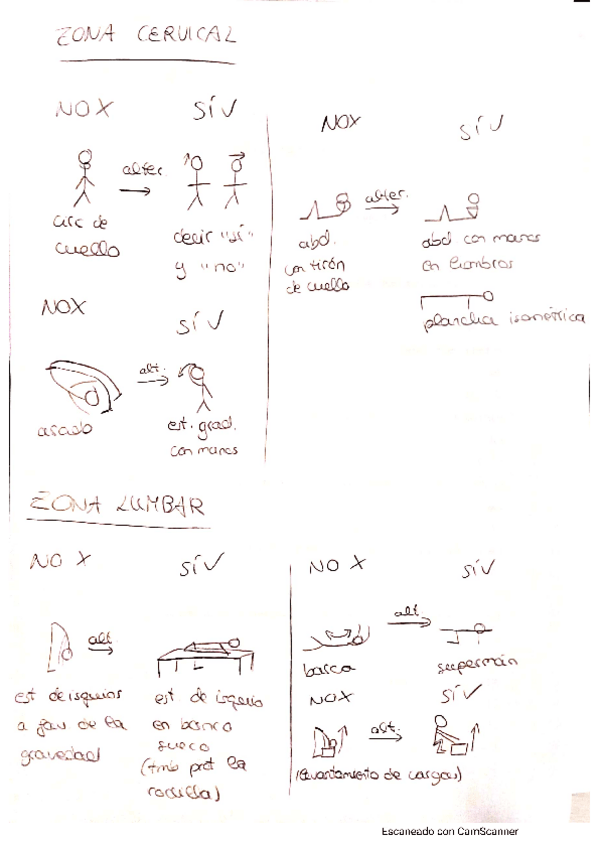 ZONA CERVICAL
NO X
SÍ V
alter.
circ de
cuello
decir "sí"
y "no"
NO X
SÍ V
alt.
arado
est. grad.
con manos
NO X
SÍ V
alter.
abd.
con tirón
de cuello
abd con manos
en hombros
plancha isométrica
ZONA LUMBAR
NO X
SÍ V
alt.
est de isquios
a fav de la
gravedad
est de isquio
en banco
sueco
(tmb prot la
rodilla)
NO X
SÍ V
alt.
barca
superman
NO X
SÍ V
alt.
(levantamiento de cargas)
Escaneado con CamScanner